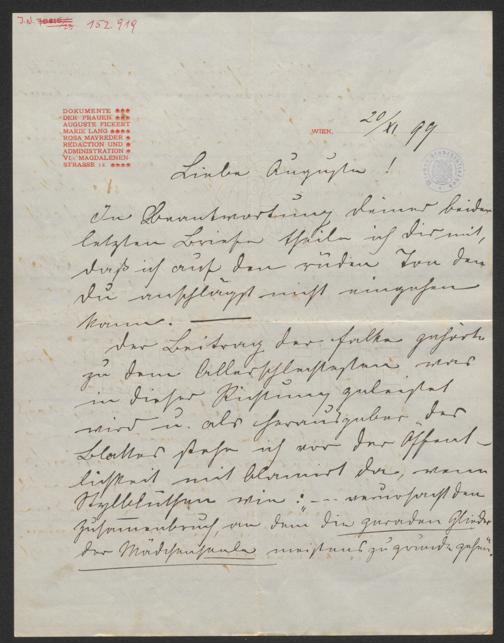 J.N. 152.919
DOKUMENTE ***
DER FRAUEN ***
AUGUSTE FICKERT
MARIE LANG ****
ROSA MAYREDER *
REDACTION UND *
ADMINISTRATION *
VI. MAGDALENEN-
STRASSE 12. ****
WIEN, 20/XI 99
Liebe Auguste!
In Beantwortung deiner beiden
letzten Briefe theile ich dir mit,
daß ich auf den rüden Ton den
du anschlägst nicht eingehen
kann. —
Der Beitrag der Falke gehört
zu dem Allerschlechtesten was
in dieser Richtung geleistet
wird u. als Herausgeber des
Blattes stehe ich vor der Öffent-
lichkeit mit blamirt da, wenn
Stylblüthen wie: "--- verursacht den
Zusamenbruch, an dem die geraden Glieder
der Mädchenseele meistens zu grunde gehen.